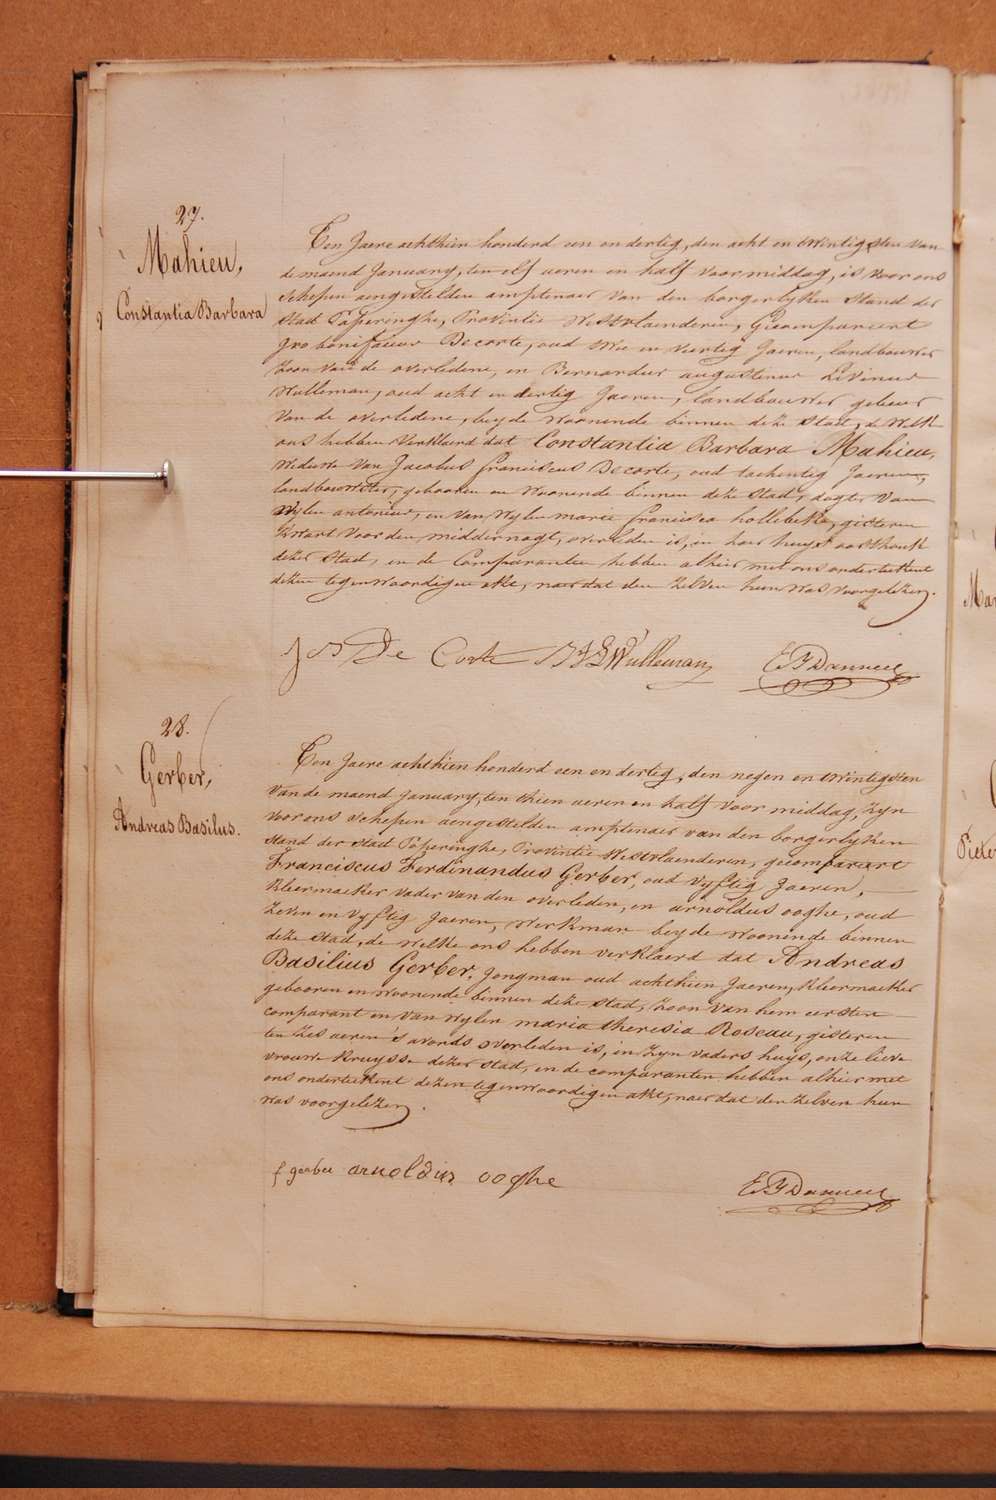 27.
Mahieu,
Constantia Barbara
Ten Jaere achthien honderd een en dertig, den acht en twintigsten van
de maend January, ten elf ueren en half voormiddag, is voor ons
schepen aengestelden amptenaer van den borgerlyken Stand der
Stad Poperinghe, Provintie Westvlaenderen, Gecompareert
Decorte, oud twee en veertig Jaeren, landbouwer
Zoon van de overledene, en Bernardus augustinus Livinus
Wulleman, oud acht en dertig Jaeren, landbouwer gebuer
van de overledene, beyde woonende binnen deze Stad, de welke
ons hebben verklaerd dat Constantia Barbara Mahieu,
Weduwe van Jacobus franciscus Decorte, oud tachentig Jaeren,
landbouwster, gebooren en woonende binnen deze stad, dogter van
wylen antonius, en van wylen marie francisca hollebeke, gisteren
kwart voor den middernagt, overleden is, in haer huys oosthouk
dezer stad, en de Comparanten hebben alhier met ons onderteekent
dezen tegenwoordigen akte, naer dat den zelven hun was voorgelezen.
De Corte B A L Wulleman
28.
Gerber,
Andreas Basilus.
Ten Jaere achthien honderd een en dertig, den negen en twintigsten
van de maend January, ten thien ueren en half voor middag, zyn
voor ons schepen aengestelden amptenaer van den borgerlyken
stand der stad Poperinghe, Provintie Westvlaenderen, gecompareert
Franciscus Ferdinandus Gerber, oud vyftig Jaeren,
kleermaeker vader van den overleden, en arnoldus ooghe, oud
zeven en vyftig Jaeren, werkman beyde woonende binnen
deze stad, de welke ons hebben verklaerd dat Andreas
Basilius Gerber, jongman oud achthien Jaeren, kleermaeker
gebooren en woonende binnen deze stad, zoon van hem eersten
comparant en van wylen maria theresia Roseau, gisteren
ten zes ueren 's avonds overleden is, in zyn vaders huys, onze lieve
vrouwe kruysse dezer stad, en de comparanten hebben alhier met
ons onderteekent dezen tegenwoordigen akte, naer dat den zelven hun
was voorgelezen.
f gerber arnoldus ooghe